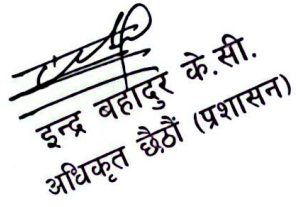 इन्द्र बहादुर के.सी.
अधिकृत छैठौं (प्रशासन)